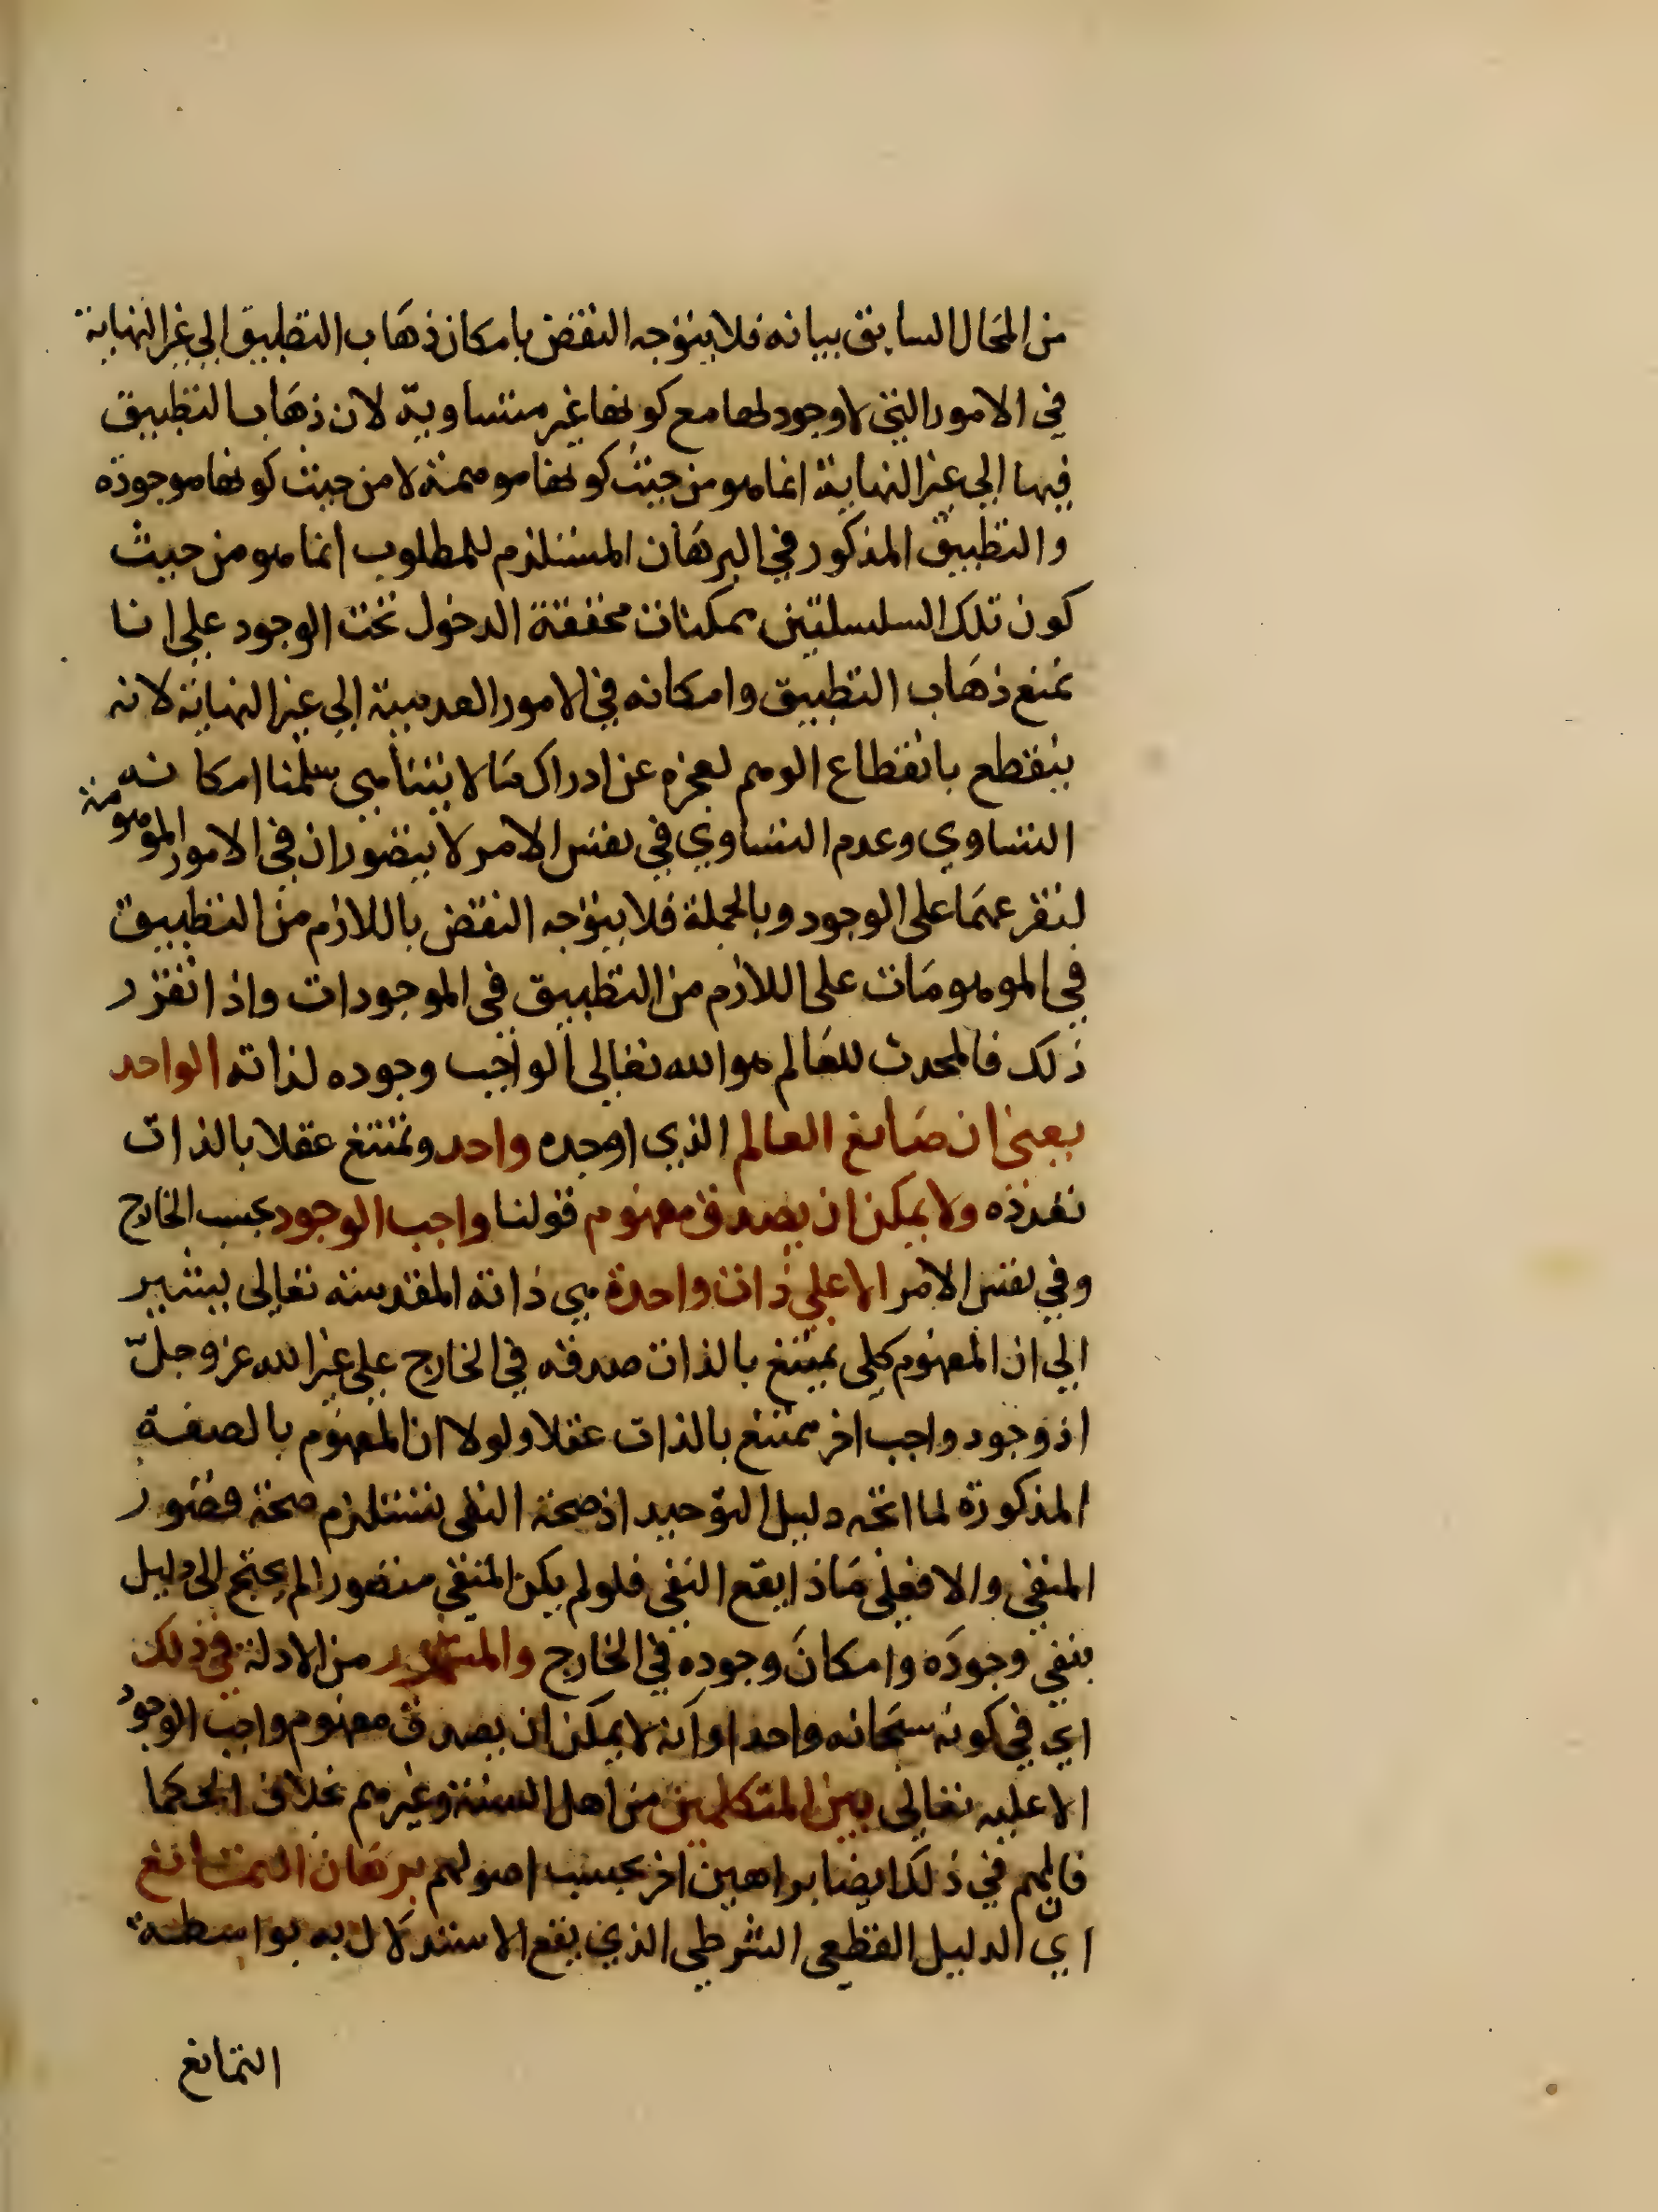 من المحال السابق بيانه فلا يتوجه النقض بامكان ذهاب التطبيق الي غير النهاية
في الامور التي لا وجود لها مع كونها غير متساوية لان ذهاب التطبيق
فيها الي غير النهاية انما هو من حيث كونها موهمة لا من حيث كونها موجودة
والتطبيق المذكور في البرهان المستلزم للمطلوب انما هو من حيث
كون تلك السلسلتين ممكنات محققة الدخول تحت الوجود علي انا
نمنع ذهاب التطبيق وامكانه في الامور العدمية الي غير النهاية لانه
ينقطع بانقطاع الوهم لعجزه عن ادراك ما لا يتناهي سلمنا امكانه
التساوي وعدم التساوي في نفس الامر لا يتصوران في الامور الموهومة
لتفرعهما علي الوجود وبالجملة فلا يتوجه النقض باللازم من التطبيق
في الموهومات على اللازم من التطبيق في الموجودات واذا تقرر
ذلك فالمحدث للعالم هو الله تعالي الواجب وجوده لذاته الواحد
يعني ان صانع العالم الذي اوجده واحد ويمتنع عقلا بالذات
تعدده ولا يمكن ان يصدق مفهوم قولنا واجب الوجود بحسب الخارج
وفي نفس الامر الا علي ذات واحدة هي ذاته المقدسة تعالى يشير
الي ان المفهوم كلي يمتنع بالذات صدقه في الخارج علي غير الله عز وجلّ
اذ وجود واجب اخر ممتنع بالذات عقلا ولولا ان المفهوم بالصفة
المذكورة لما اتجه دليل التوحيد اذ صحة النفي تستلزم صحة تصور
المنفي والا فعلي ماذا يقع النفي فلو لم يكن المنفي متصورا لم يحتج الى دليل
ينفي وجوده وامكان وجوده في الخارج والمشهور من الادلة في ذلك
اي في كونه سبحانه واحدا وانه لا يمكن ان يصدق مفهوم واجب الوجود
الا عليه تعالي بين المتكلمين من اهل السنة وغيرهم بخلاف الحكما
فان لهم في ذلك ايضا براهين اخر بحسب اصولهم برهان التمانع
اي الدليل القطعي الشرطي الذي يقع الاستدلال به بواسطة
التمانع